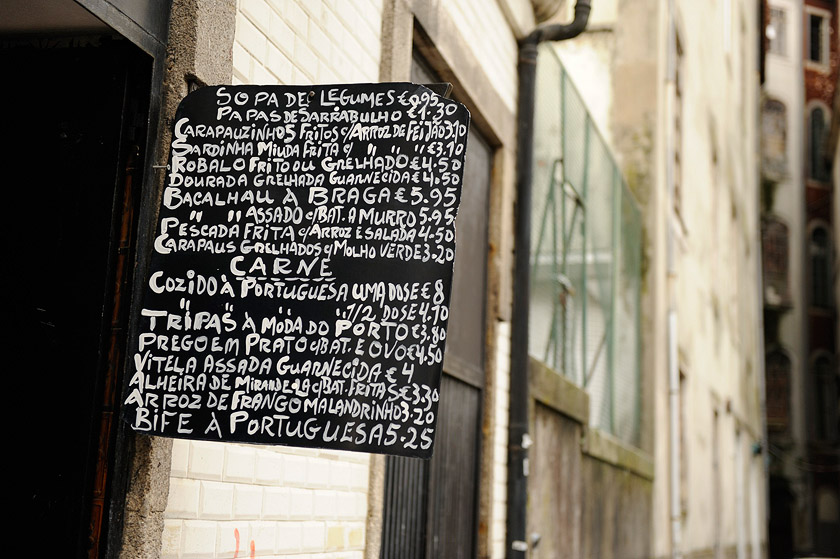 SOPA DE LEGUMES €0.95
PAPAS DE SARRABULHO €1.30
CARAPAUZINHOS FRITOS c/ARROZ DE FEIJÃO 3.10
SARDINHA MIUDA FRITA c/ " " " €3.10
ROBALO FRITO OU GRELHADO €4.50
DOURADA GRELHADA GUARNECIDA €4.50
BACALHAU À BRAGA €5.95
" " ASSADO c/BAT. A MURRO 5.95
PESCADA FRITA c/ARROZ E SALADA 4.50
CARAPAUS GRELHADOS c/MOLHO VERDE 3.20
CARNE
COZIDO À PORTUGUESA UMA DOSE € 8
" " " 1/2 DOSE 4.70
TRIPAS À MODA DO PORTO €3.80
PREGO EM PRATO c/BAT. E OVO €4.50
VITELA ASSADA GUARNECIDA € 4
ALHEIRA DE MIRANDELA c/BAT. FRITAS €3.30
ARROZ DE FRANGO MALANDRINHO 3.20
BIFE À PORTUGUESA 5.25